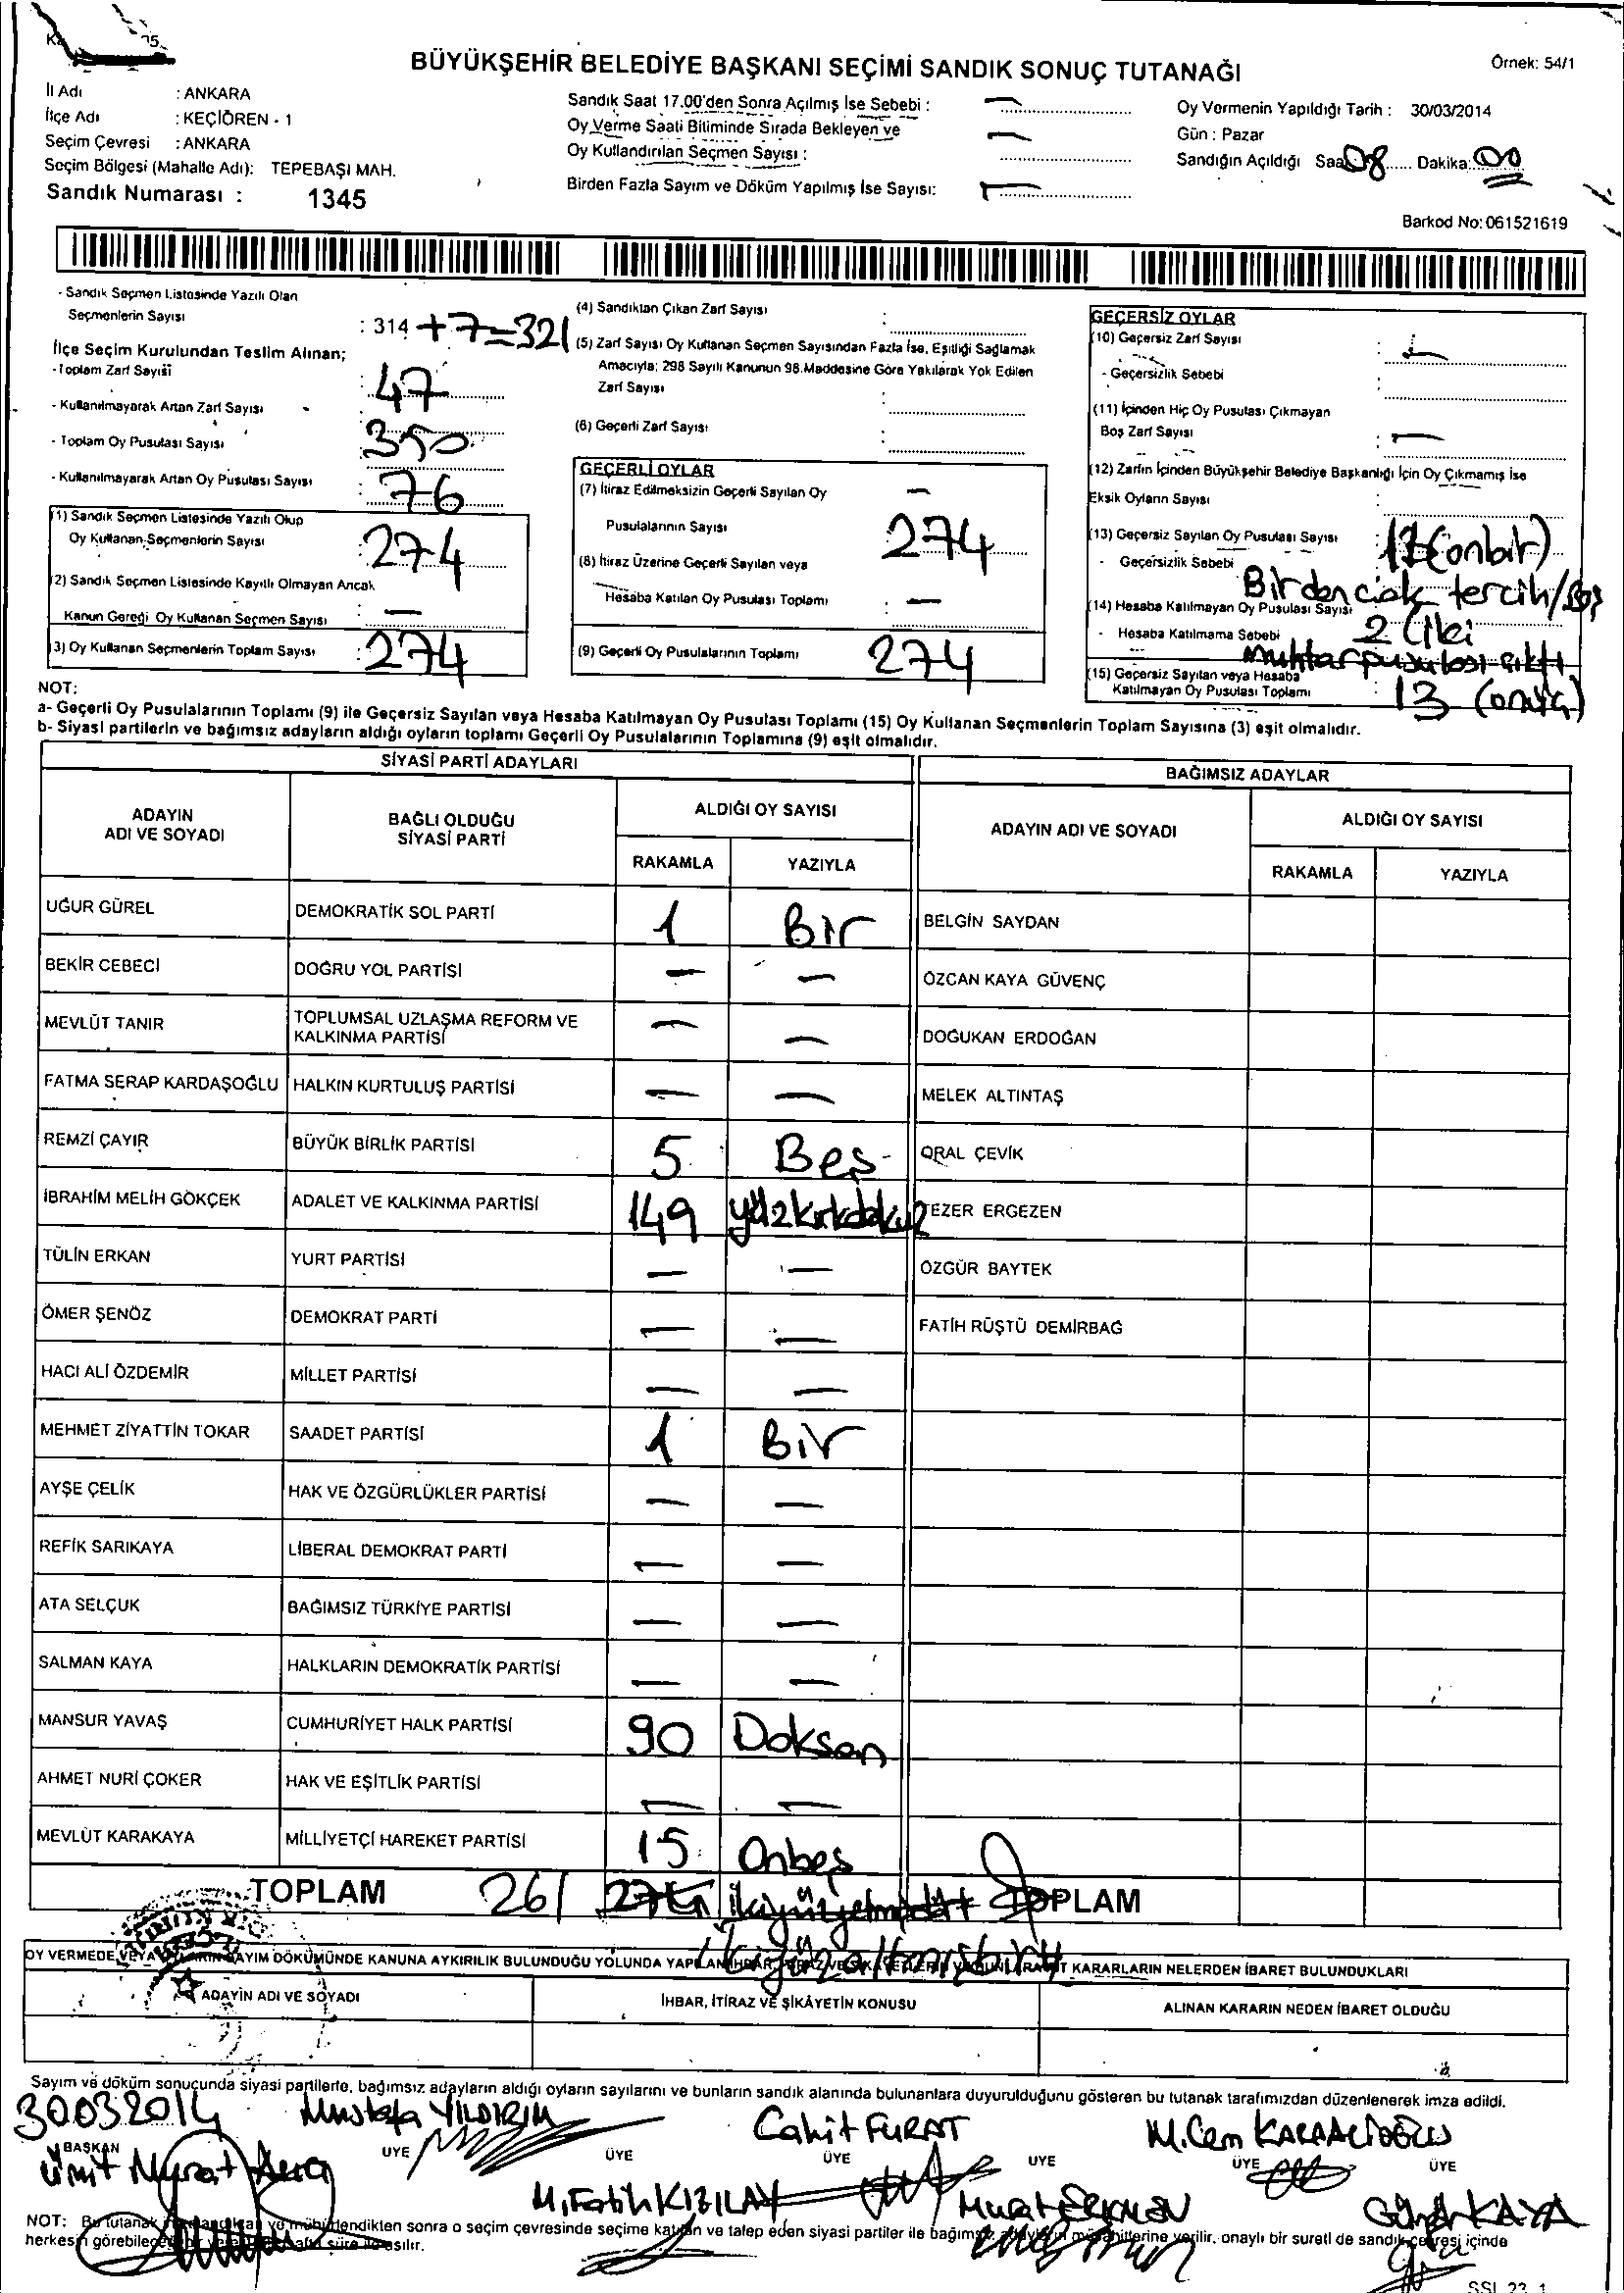 BÜYÜKŞEHİR BELEDİYE BAŞKANI SEÇİMİ SANDIK SONUÇ TUTANAĞI
Örnek: 54/1
İl Adı : ANKARA
İlçe Adı : KEÇİÖREN - 1
Seçim Çevresi : ANKARA
Seçim Bölgesi (Mahalle Adı): TEPEBAŞI MAH.
Sandık Numarası : 1345
Sandık Saat 17.00'den Sonra Açılmış İse Sebebi : —
Oy Verme Saati Bitiminde Sırada Bekleyen ve —
Oy Kullandırılan Seçmen Sayısı :
Birden Fazla Sayım ve Döküm Yapılmış İse Sayısı: —
Oy Vermenin Yapıldığı Tarih : 30/03/2014
Gün : Pazar
Sandığın Açıldığı Saat 08 Dakika: 00
Barkod No: 061521619
- Sandık Seçmen Listesinde Yazılı Olan
Seçmenlerin Sayısı : 314 + 7 = 321
İlçe Seçim Kurulundan Teslim Alınan;
- Toplam Zarf Sayısı
: 47
- Kullanılmayarak Artan Zarf Sayısı
- Toplam Oy Pusulası Sayısı : 350
- Kullanılmayarak Artan Oy Pusulası Sayısı : 76
(1) Sandık Seçmen Listesinde Yazılı Olup
Oy Kullanan Seçmenlerin Sayısı : 274
(2) Sandık Seçmen Listesinde Kayıtlı Olmayan Ancak
Kanun Gereği Oy Kullanan Seçmen Sayısı : —
(3) Oy Kullanan Seçmenlerin Toplam Sayısı : 274
(4) Sandıktan Çıkan Zarf Sayısı :
(5) Zarf Sayısı Oy Kullanan Seçmen Sayısından Fazla İse, Eşitliği Sağlamak
Amacıyla; 298 Sayılı Kanunun 98.Maddesine Göre Yakılarak Yok Edilen
Zarf Sayısı :
(6) Geçerli Zarf Sayısı :
GEÇERLİ OYLAR
(7) İtiraz Edilmeksizin Geçerli Sayılan Oy —
Pusulalarının Sayısı 274
(8) İtiraz Üzerine Geçerli Sayılan veya
Hesaba Katılan Oy Pusulası Toplamı : —
(9) Geçerli Oy Pusulalarının Toplamı 274
GEÇERSİZ OYLAR
(10) Geçersiz Zarf Sayısı : —
- Geçersizlik Sebebi :
(11) İçinden Hiç Oy Pusulası Çıkmayan
Boş Zarf Sayısı : —
(12) Zarfın İçinden Büyükşehir Belediye Başkanlığı İçin Oy Çıkmamış İse
Eksik Oyların Sayısı :
(13) Geçersiz Sayılan Oy Pusulası Sayısı 11 (onbir)
- Geçersizlik Sebebi Birden çok tercih/Boş
(14) Hesaba Katılmayan Oy Pusulası Sayısı 2 (iki
- Hesaba Katılmama Sebebi Muhtar pusulası çıktı
(15) Geçersiz Sayılan veya Hesaba
Katılmayan Oy Pusulası Toplamı : 13 (onüç)
NOT:
a- Geçerli Oy Pusulalarının Toplamı (9) ile Geçersiz Sayılan veya Hesaba Katılmayan Oy Pusulası Toplamı (15) Oy Kullanan Seçmenlerin Toplam Sayısına (3) eşit olmalıdır.
b- Siyasi partilerin ve bağımsız adayların aldığı oyların toplamı Geçerli Oy Pusulalarının Toplamına (9) eşit olmalıdır.
SİYASİ PARTİ ADAYLARI
BAĞIMSIZ ADAYLAR
ADAYIN ADI VE SOYADI
BAĞLI OLDUĞU SİYASİ PARTİ
ALDIĞI OY SAYISI
RAKAMLA YAZIYLA
ADAYIN ADI VE SOYADI
ALDIĞI OY SAYISI
RAKAMLA YAZIYLA
UĞUR GÜREL DEMOKRATİK SOL PARTİ 1 Bir BELGİN SAYDAN
BEKİR CEBECİ DOĞRU YOL PARTİSİ — — ÖZCAN KAYA GÜVENÇ
MEVLÜT TANIR TOPLUMSAL UZLAŞMA REFORM VE KALKINMA PARTİSİ — — DOĞUKAN ERDOĞAN
FATMA SERAP KARDAŞOĞLU HALKIN KURTULUŞ PARTİSİ — — MELEK ALTINTAŞ
REMZİ ÇAYIR BÜYÜK BİRLİK PARTİSİ 5 Beş ORAL ÇEVİK
İBRAHİM MELİH GÖKÇEK ADALET VE KALKINMA PARTİSİ 149 yüzkırkdokuz EZER ERGEZEN
TÜLİN ERKAN YURT PARTİSİ — — ÖZGÜR BAYTEK
ÖMER ŞENÖZ DEMOKRAT PARTİ — — FATİH RÜŞTÜ DEMİRBAĞ
HACI ALİ ÖZDEMİR MİLLET PARTİSİ — —
MEHMET ZİYATTİN TOKAR SAADET PARTİSİ 1 Bir
AYŞE ÇELİK HAK VE ÖZGÜRLÜKLER PARTİSİ — —
REFİK SARIKAYA LİBERAL DEMOKRAT PARTİ — —
ATA SELÇUK BAĞIMSIZ TÜRKİYE PARTİSİ — —
SALMAN KAYA HALKLARIN DEMOKRATİK PARTİSİ — —
MANSUR YAVAŞ CUMHURİYET HALK PARTİSİ 90 Doksan
AHMET NURİ ÇOKER HAK VE EŞİTLİK PARTİSİ — —
MEVLÜT KARAKAYA MİLLİYETÇİ HAREKET PARTİSİ 15 Onbeş
TOPLAM 261 274 ikiyüzyetmişdört TOPLAM
ikiyüzaltmışbir
OY VERMEDE VEYA SAYIM DÖKÜMÜNDE KANUNA AYKIRILIK BULUNDUĞU YOLUNDA YAPILAN KARARLARIN NELERDEN İBARET BULUNDUKLARI
ADAYIN ADI VE SOYADI
İHBAR, İTİRAZ VE ŞİKÂYETİN KONUSU
ALINAN KARARIN NEDEN İBARET OLDUĞU
Sayım ve döküm sonucunda siyasi partilerle, bağımsız adayların aldığı oyların sayılarını ve bunların sandık alanında bulunanlara duyurulduğunu gösteren bu tutanak tarafımızdan düzenlenerek imza edildi.
30.03.2014 Mustafa YILDIRIM Cahit FURAT M.Cem KARAALİOĞLU
BAŞKAN ÜYE ÜYE ÜYE ÜYE ÜYE ÜYE
Ümit Murat
M.Fatih KIZILAY Murat KAYA
NOT: Bu tutanak dendikten sonra o seçim çevresinde seçime katılan ve talep eden siyasi partiler ile bağımsız müşahitlerine verilir, onaylı bir sureti de sandık çevresi içinde
herkesin görebileceği süre ile asılır.